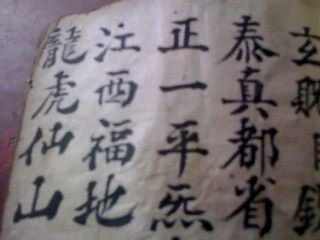 玄
泰真都省
正一平炁
江西福地
龍虎仙山